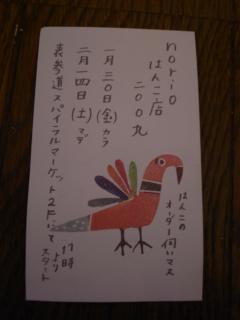 norio
はんこ店
二〇〇九
一月三〇日(金)カラ
二月一四日(土)マデ
表参道スパイラルマーケット2F.にて
11時
より
スタート
はんこの
オーダー伺いマス